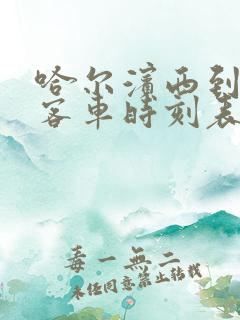 哈尔滨西到
客车时刻表
毒一無二
未经同意禁止转载